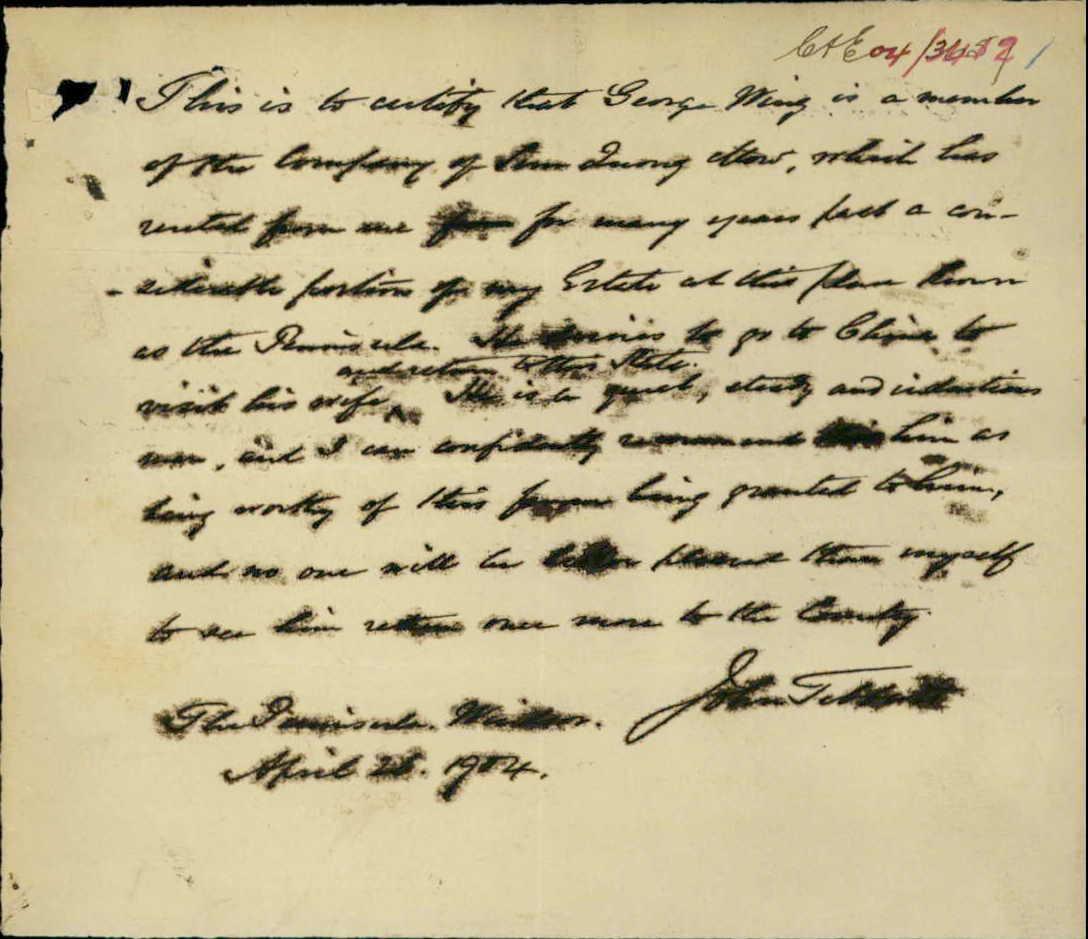 C & E 04/3489
This is to certify that George Wing is a member
of the Company of Quong Mow, which has
rented from me for many years past a con-
-siderable portion of my Estate at this place known
as the Peninsula. He desires to go to China to
and return to this State.
visit his wife He is a quiet, steady and industrious
man, and I can confidently recommend him as
being worthy of this favour being granted to him,
and no one will be better pleased than myself
to see him return once more to the Country.
John Tebbutt
The Peninsula. Windsor.
April 1904.